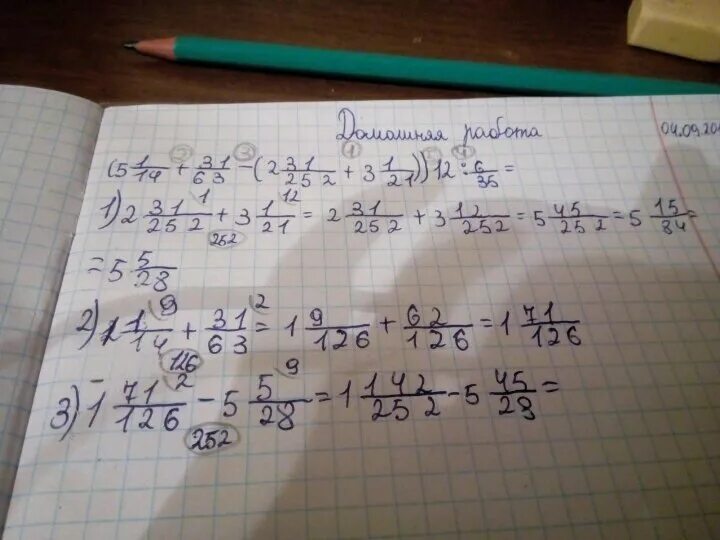 Домашняя работа
04.09.20
(5 1/14 + 31/63 - (2 31/252 + 3 1/21)) 12 : 6/35 =
1) 2 31/252 + 3 1/21 = 2 31/252 + 3 12/252 = 5 45/252 = 5 15/84 =
= 5 5/28
2) 1 1/14 + 31/63 = 1 9/126 + 62/126 = 1 71/126
3) 1 71/126 - 5 5/28 = 1 142/252 - 5 45/28 =